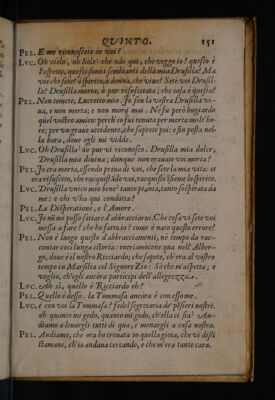 QUINTO. 151
PEL. E me riconoscete or voi?
LVC. Oh cielo, oh Sole: che odo qui, che veggo io? questo è
l'aspetto, questi sono i sembianti della mia Drusilla! Ma
voi chi sete? ò spirito, ò donna, che viue? Sete voi Drusil-
la? Drusilla morta, ò pur risuscitata; che cosa è questa?
PEL. Non temete, Lucretio mio, Io son la vostra Drusilla vi-
ua, e non morta; e non morij mai. Ne fia però bugiardo
quel vostro amico: perch'io fui tenuta per morta molt'ho-
re; per un graue accidente, che saprete poi: e fin posta nel-
la bara, doue egli mi vidde.
LVC. Oh Drusilla! io pur vi riconosco. Drusilla mia dolce,
Drusilla mia diuina; dunque non erauate voi morta?
PEL. Io era morta, essendo priua di voi, che sete la mia vita: et
ora risuscito, che racquistādo voi, racquisto l'esser, e lo spirito.
LVC. Drusilla vnico mio bene tanto pianta, tanto sospirata da
me: e chi v'ha qui condotta?
PEL. La Disperatione, e l'Amore.
LVC. Io nō mi posso satiare d'abbracciarui. Che cosa vi sete voi
messa a fare? che ho fatto io? come è nato questo errore?
PEL. Non è luogo questo d'abbracciamenti, nè tempo da rac-
contar così lunga istoria: entriamocene quà nell'Alber-
go, doue è il nostro Ricciardo; che sapete, ch'era al vostro
tempo in Marsilia col Signor Zio: Sò che m'aspetta; e
voglio, ch'egli ancora partecipi dell'allegrezza.
LVC. Ah sì, quello è Ricciardo eh?
PEL. Quello è desso. la Tommasa ancora è con esso me.
LVC. è con voi la Tommasa? fedel segretaria de' pēsieri nostri.
oh quanto mi godo, quanto mi godo, ch'ella ci sia! An-
diamo a leuargli tutti di qua, e menargli a casa nostra.
PEL. Andiamo, che ora ho trouata io quella gioia, che vi dissi
stamane, ch'io andaua cercando, e che m'era tanto cara.